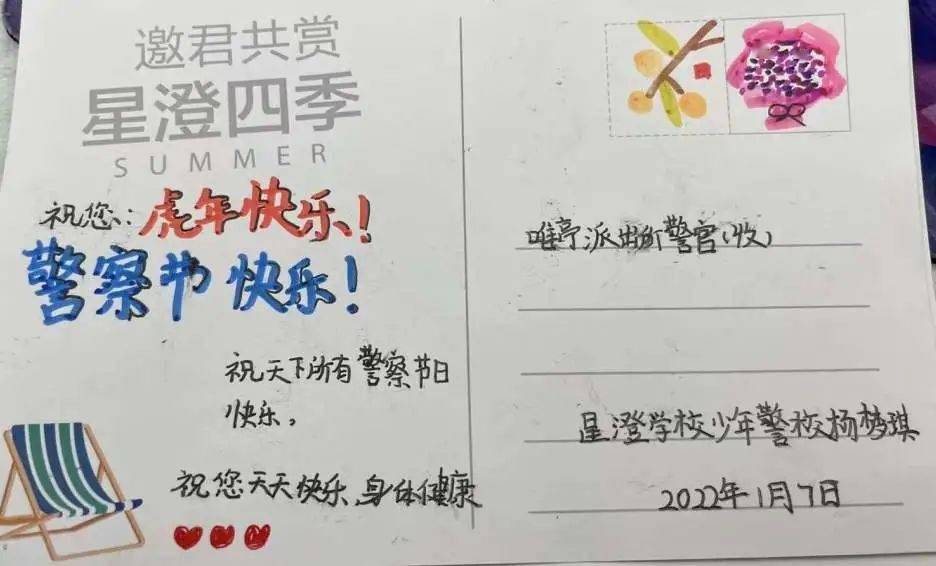 邀君共赏
星澄四季
SUMMER
祝您:虎年快乐!
警察节快乐!
祝天下所有警察节日
快乐。
祝您天天快乐身体健康
唯亭派出所警官(收)
星澄学校少年警校杨梦琪
2022年1月7日